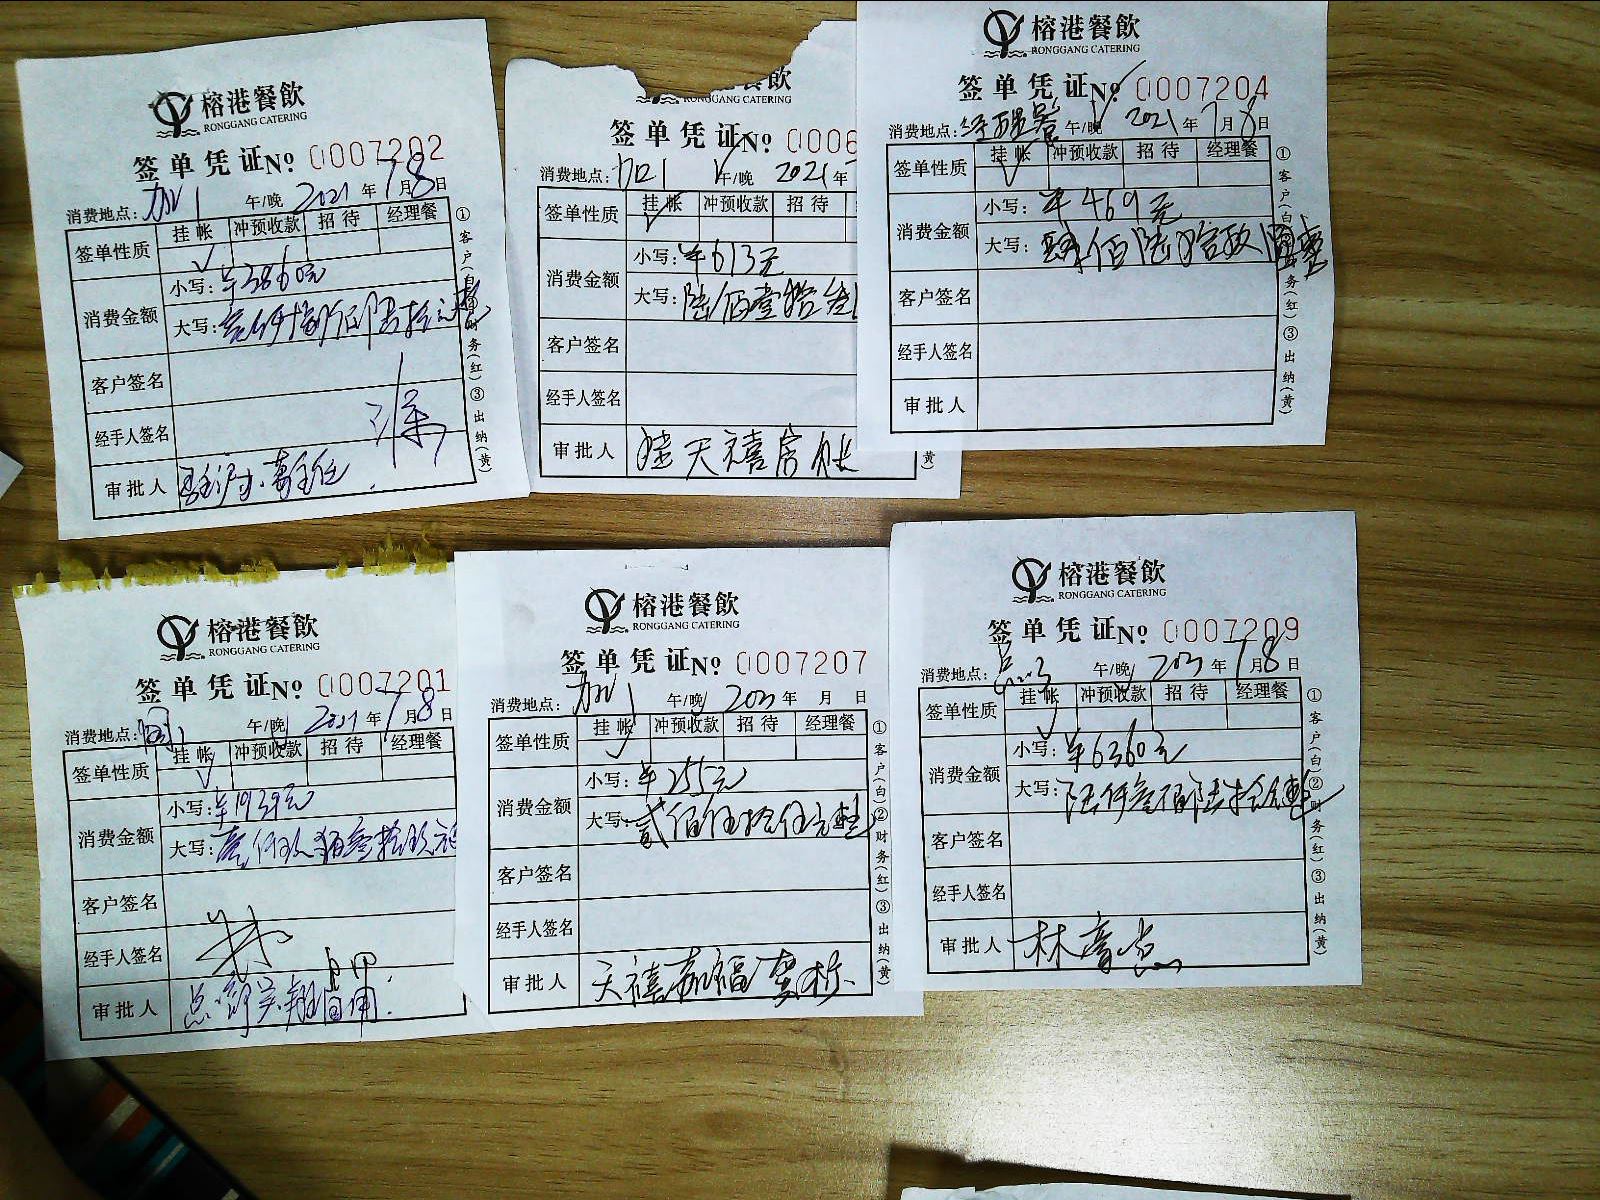 榕港餐飲
RONGGANG CATERING
签单凭证 No 0007202
消费地点: 午/晚 2021年7月8日
签单性质 挂帐 冲预收款 招待 经理餐
√
消费金额 小写: ¥3860元
大写: 叁仟捌佰陆拾元整
客户签名
经手人签名
审批人
①客户(白)②财务(红)③出纳(黄)
餐飲
RONGGANG CATERING
签单凭证 No 0006
消费地点: 午/晚 2021年
签单性质 挂帐 冲预收款 招待
√
消费金额 小写: ¥613元
大写: 陆佰壹拾叁
客户签名
经手人签名
审批人 天禧房
黄)
榕港餐飲
RONGGANG CATERING
签单凭证 No 0007204
消费地点: 午/晚 2021年7月8日
签单性质 挂帐 冲预收款 招待 经理餐
√
消费金额 小写: ¥469元
大写: 肆佰陆拾玖圆整
客户签名
经手人签名
审批人
①客户(白 务(红)③出纳(黄)
榕港餐飲
RONGGANG CATERING
签单凭证 No 0007201
消费地点: 午/晚 2021年7月8日
签单性质 挂帐 冲预收款 招待 经理餐
√
消费金额 小写: ¥1939元
大写: 壹仟玖佰叁拾玖元
客户签名
经手人签名
审批人
榕港餐飲
RONGGANG CATERING
签单凭证 No 0007207
消费地点: 午/晚 202 年 月 日
签单性质 挂帐 冲预收款 招待 经理餐
√
消费金额 小写: ¥255元
大写: 贰佰伍拾伍元整
客户签名
经手人签名
审批人 天禧嘉福
①客户(白)②财务(红)③出纳(黄)
榕港餐飲
RONGGANG CATERING
签单凭证 No 0007209
消费地点: 午/晚 202 年7月8日
签单性质 挂帐 冲预收款 招待 经理餐
√
消费金额 小写: ¥6360元
大写: 陆仟叁佰陆拾元整
客户签名
经手人签名
审批人 林
①客户(白)②财务(红)③出纳(黄)